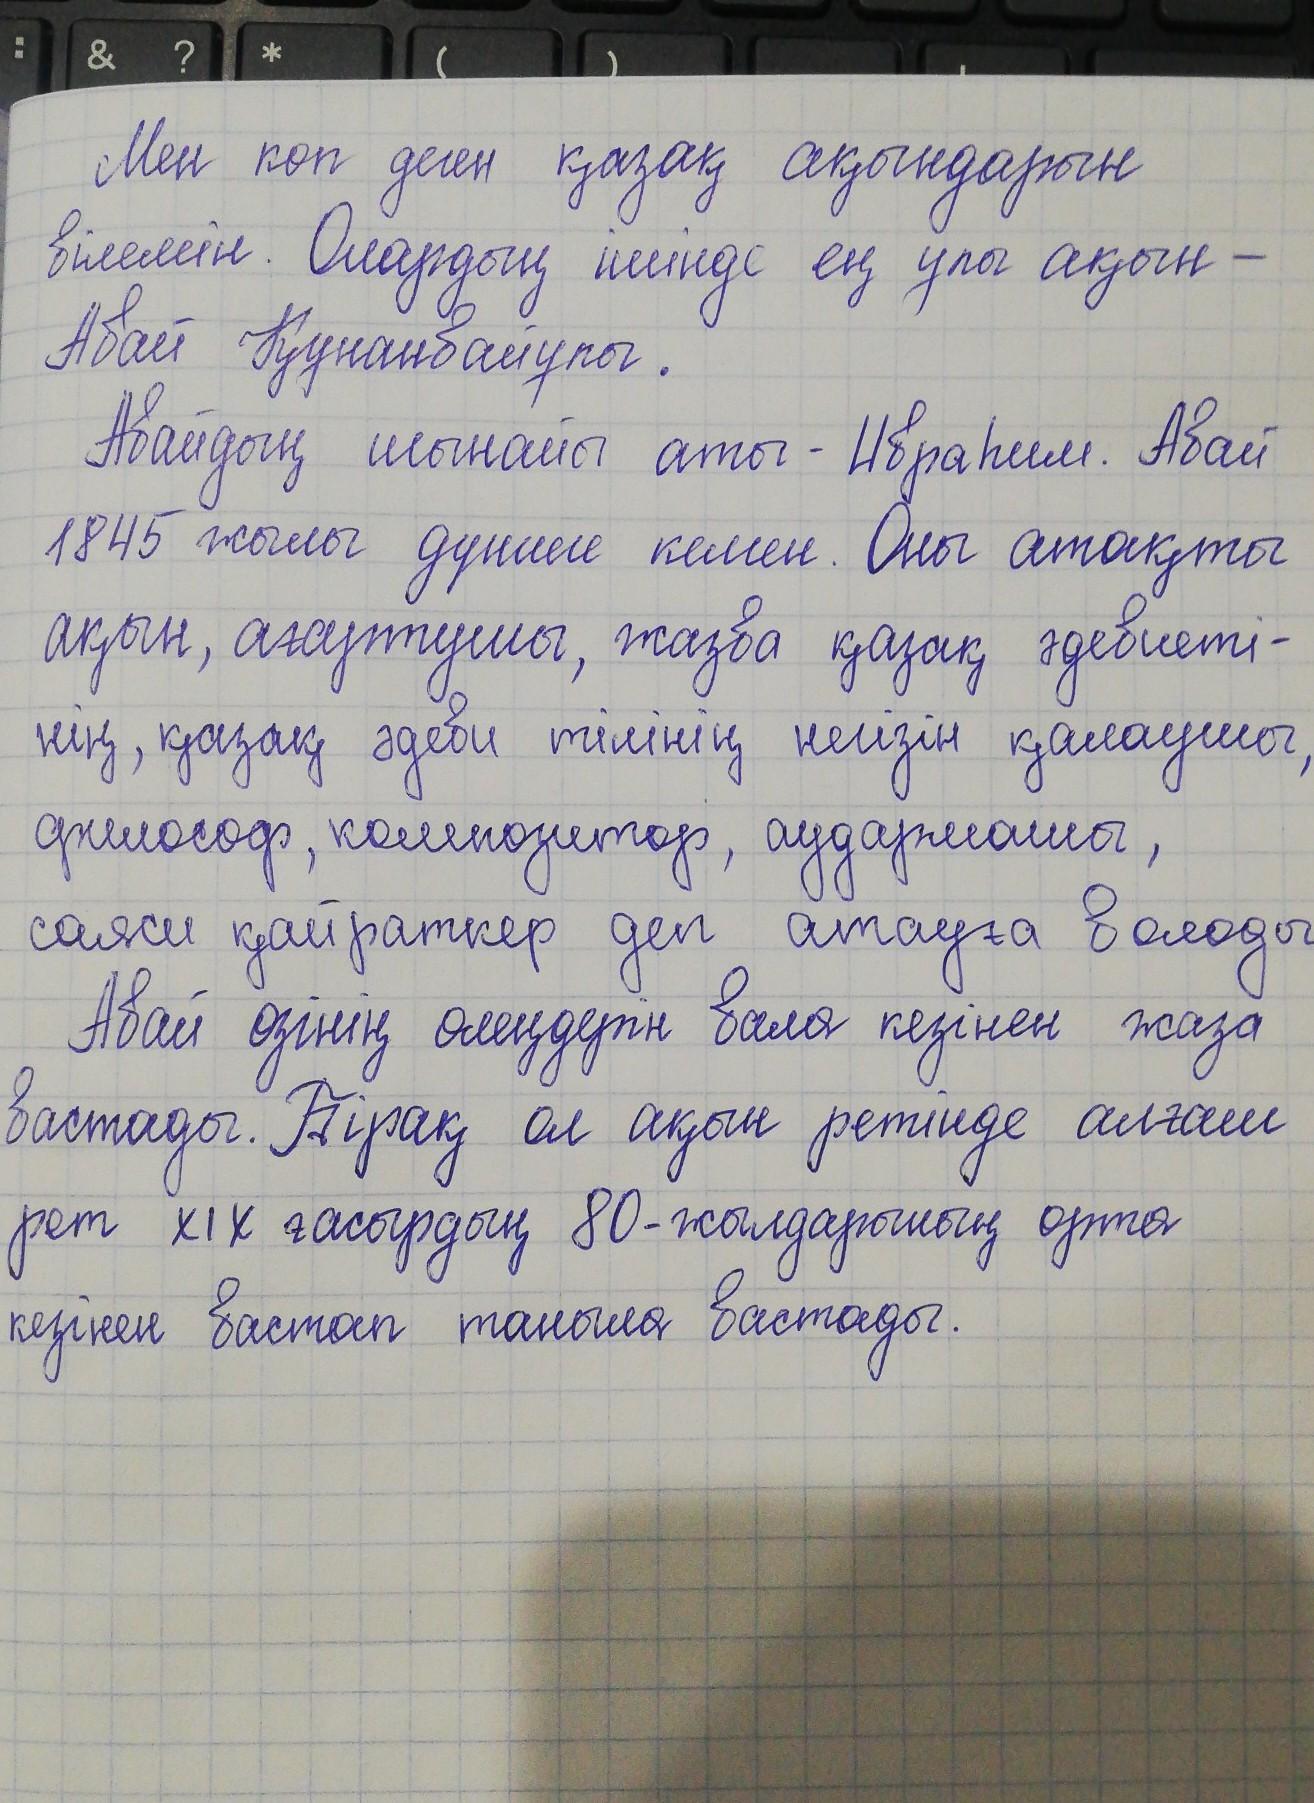 : & ? * ( )
Мен көп деген қазақ ақындарын
білемін. Олардың ішінде ең ұлы ақын –
Абай Құнанбайұлы.
Абайдың шынайы аты - Ибраһим. Абай
1845 жылы дүниие келген. Оны атақты
ақын, ағартушы, жазба қазақ әдебиеті-
нің, қазақ әдеби тілінің негізін қалаушы,
философ, композитор, аудармашы,
саяси қайраткер деп атауға болады
Абай өзінің өлеңдерін бала кезінен жаза
бастады. Бірақ ол ақын ретінде алғаш
рет XIX ғасырдың 80-жылдарының орта
кезінен бастап таныла бастады.